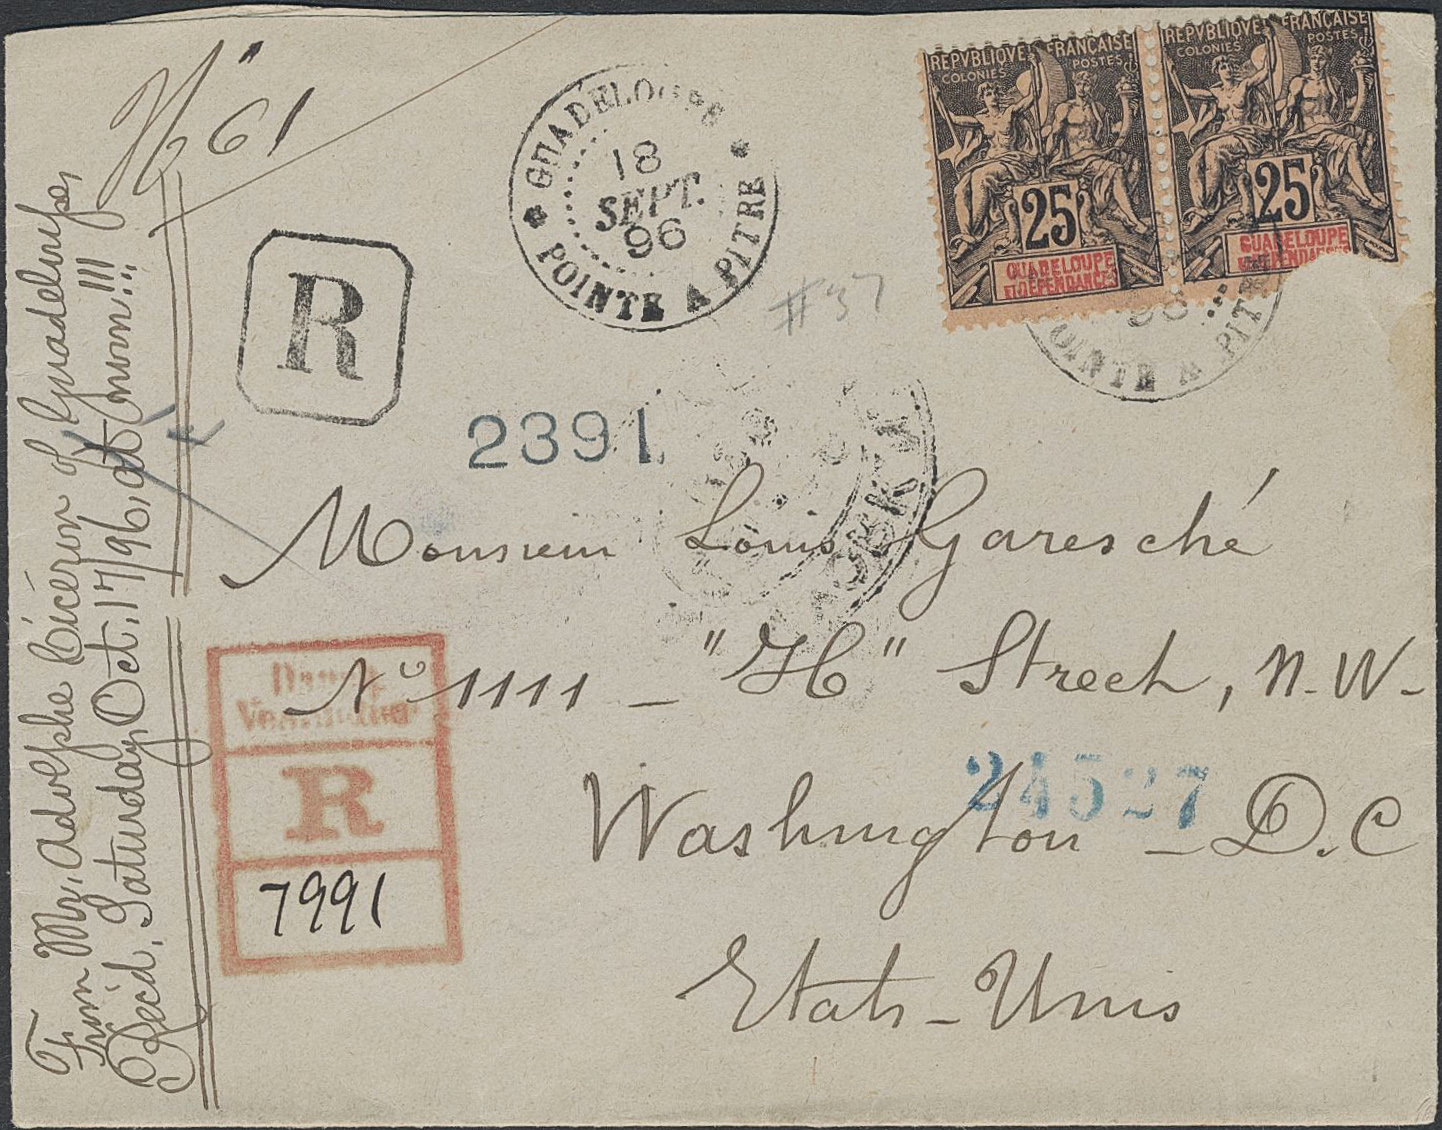 No 61
GUADELOUPE
18
SEPT.
96
POINTE A PITRE
REPVBLIQVE FRANÇAISE
COLONIES POSTES
25
GUADELOUPE
ET DEPENDANCES
REPVBLIQVE FRANÇAISE
COLONIES POSTES
25
GUADELOUPE
ET DEPENDANCES
POINTE A PITRE
R
#37
2391
Monsieur Louis Garesché
No 1111 - "H" Street, N.W-
24527
Washington - D.C
Etats-Unis
R
7991
From Mr. Adolphe Cicéron of Guadeloupe,
Rec'd, Saturday Oct. 17/96, at noon!!!